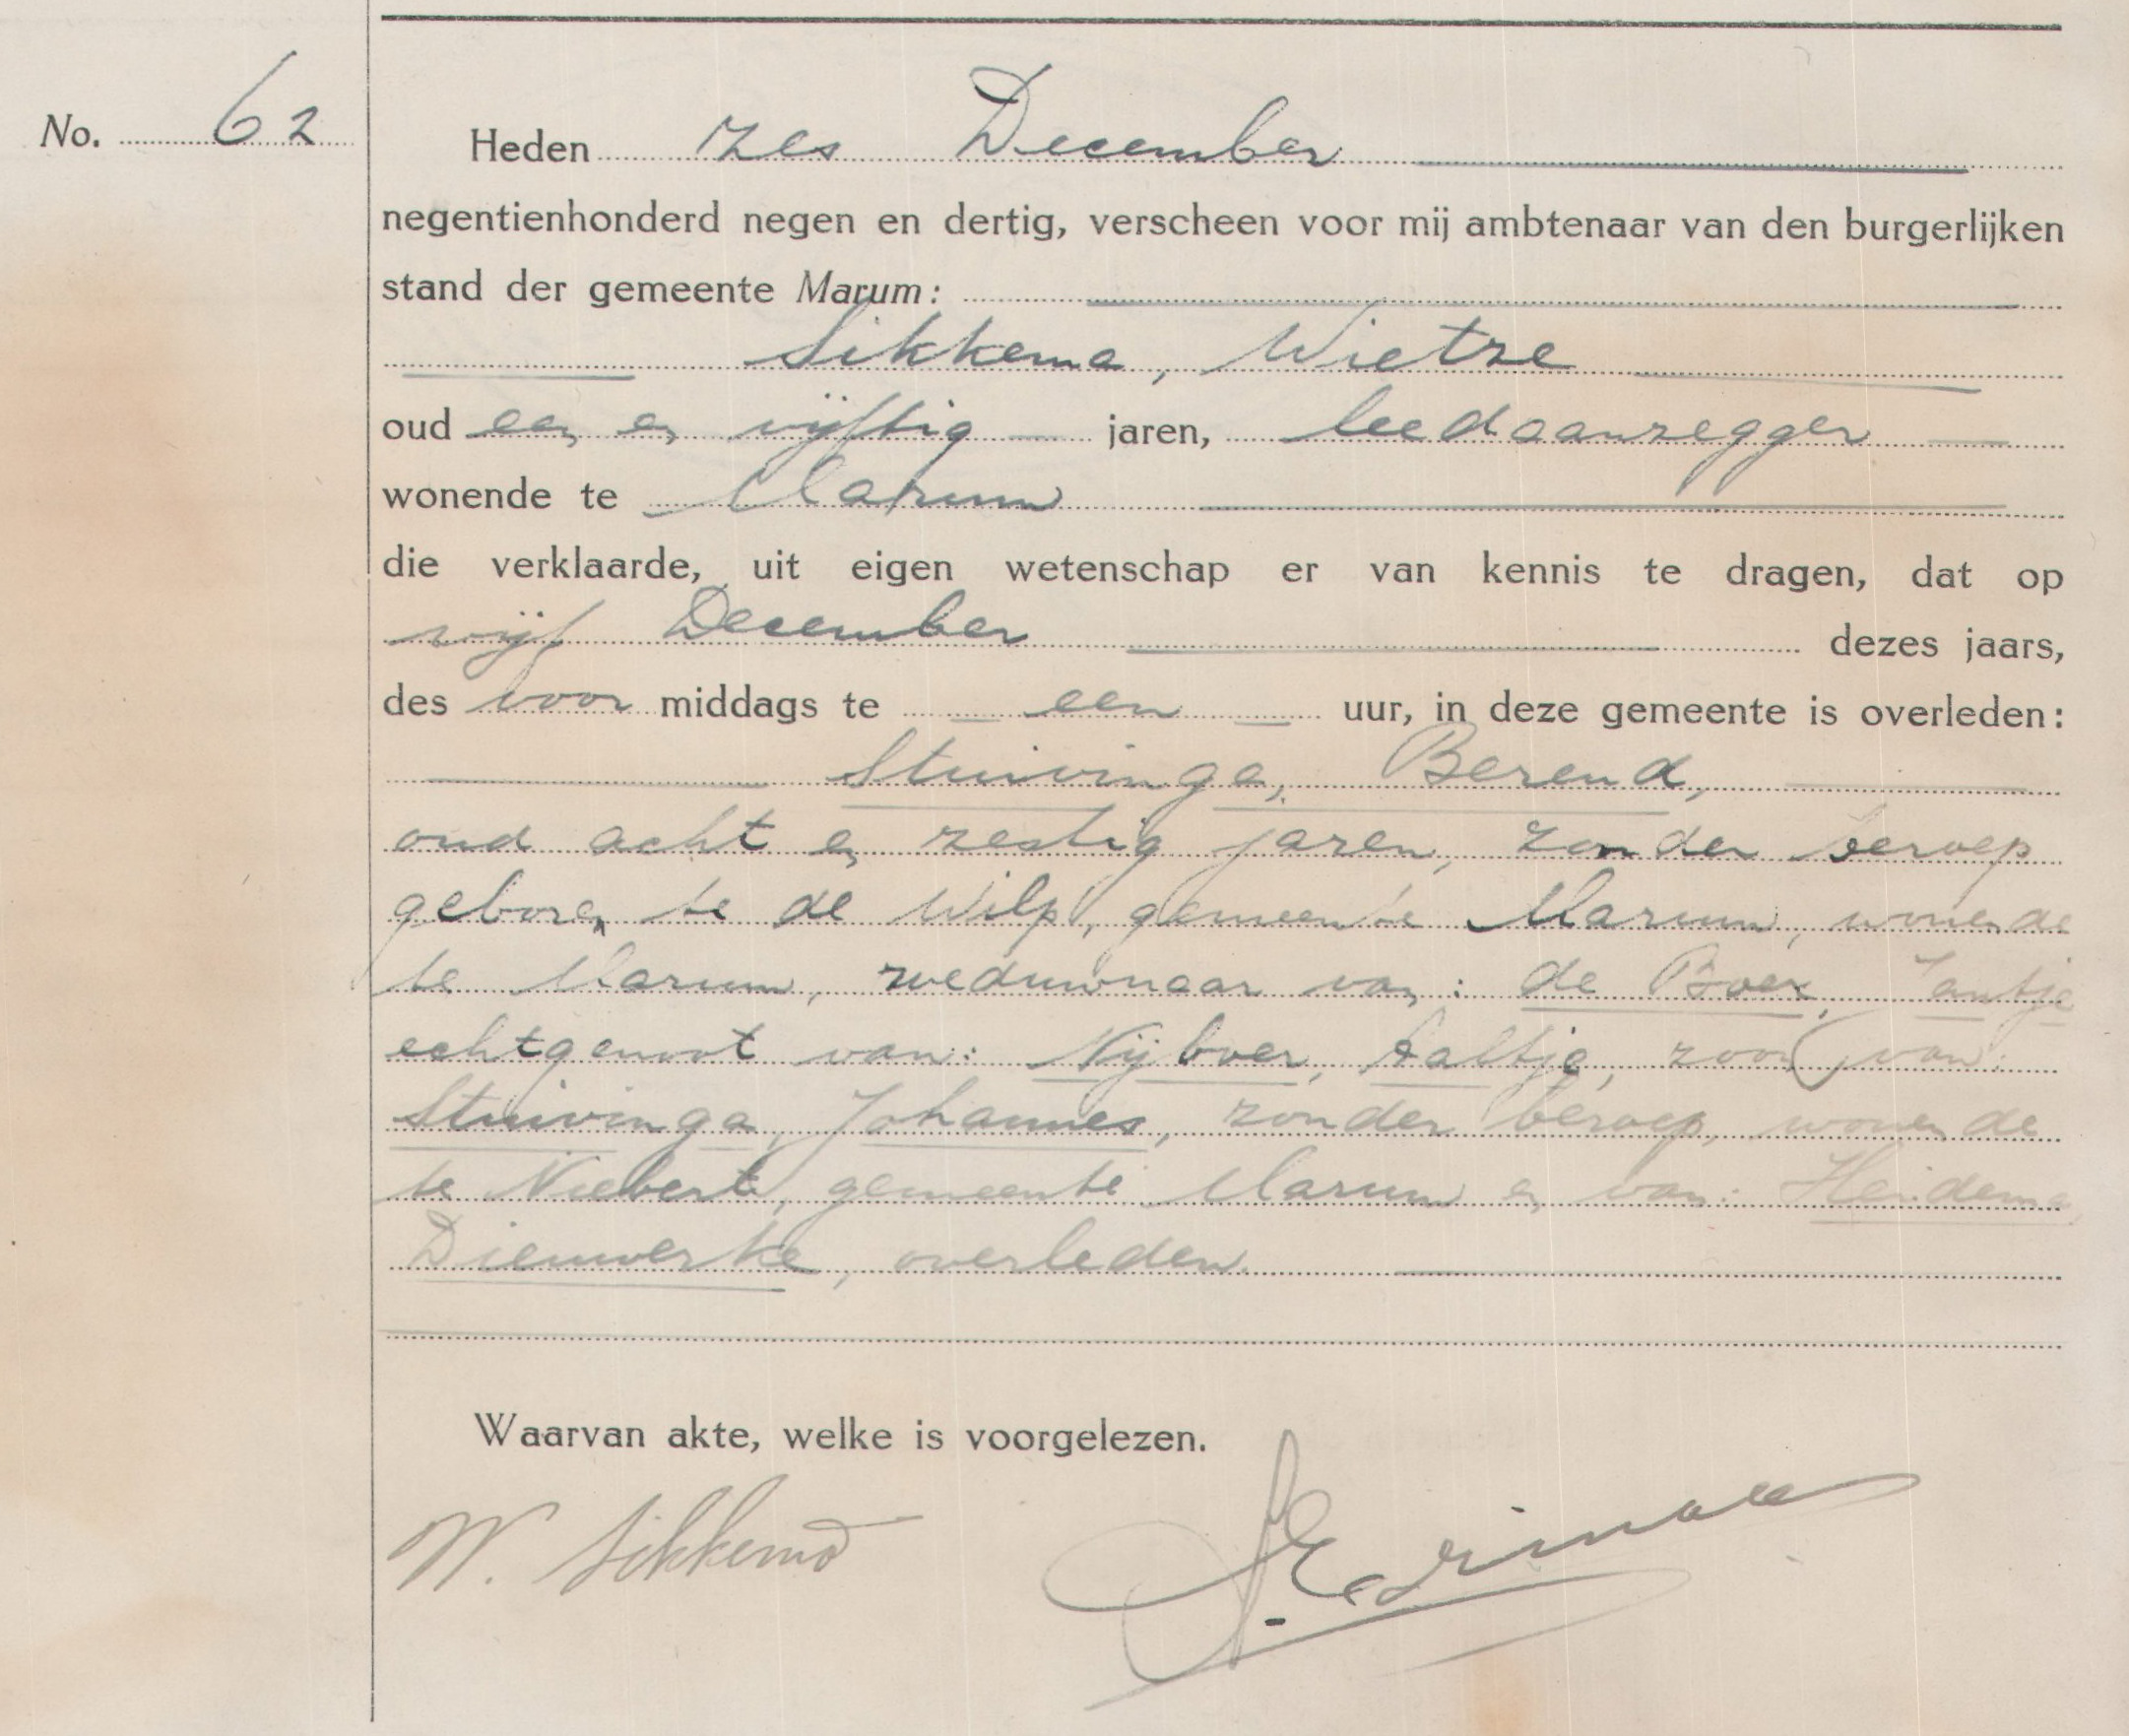 No. 62
Heden zes December
negentienhonderd negen en dertig, verscheen voor mij ambtenaar van den burgerlijken
stand der gemeente Marum:
Sikkema, Wietze
oud een en vijftig jaren, leedaanzegger
wonende te Marum
die verklaarde, uit eigen wetenschap er van kennis te dragen, dat op
vijf December dezes jaars,
des voor middags te een uur, in deze gemeente is overleden:
Stuivinga, Berend,
oud acht en zestig jaren, zonder beroep
geboren te de Wilp, gemeente Marum, wonende
te Marum, weduwnaar van: de Boer, Jantje
echtgenoot van: Nijboer, Aaltje, zoon van:
Stuivinga, Johannes, zonder beroep, wonende
te Niebert, gemeente Marum en van: Heidema,
Dieuwerke, overleden.
Waarvan akte, welke is voorgelezen.
W. Sikkema